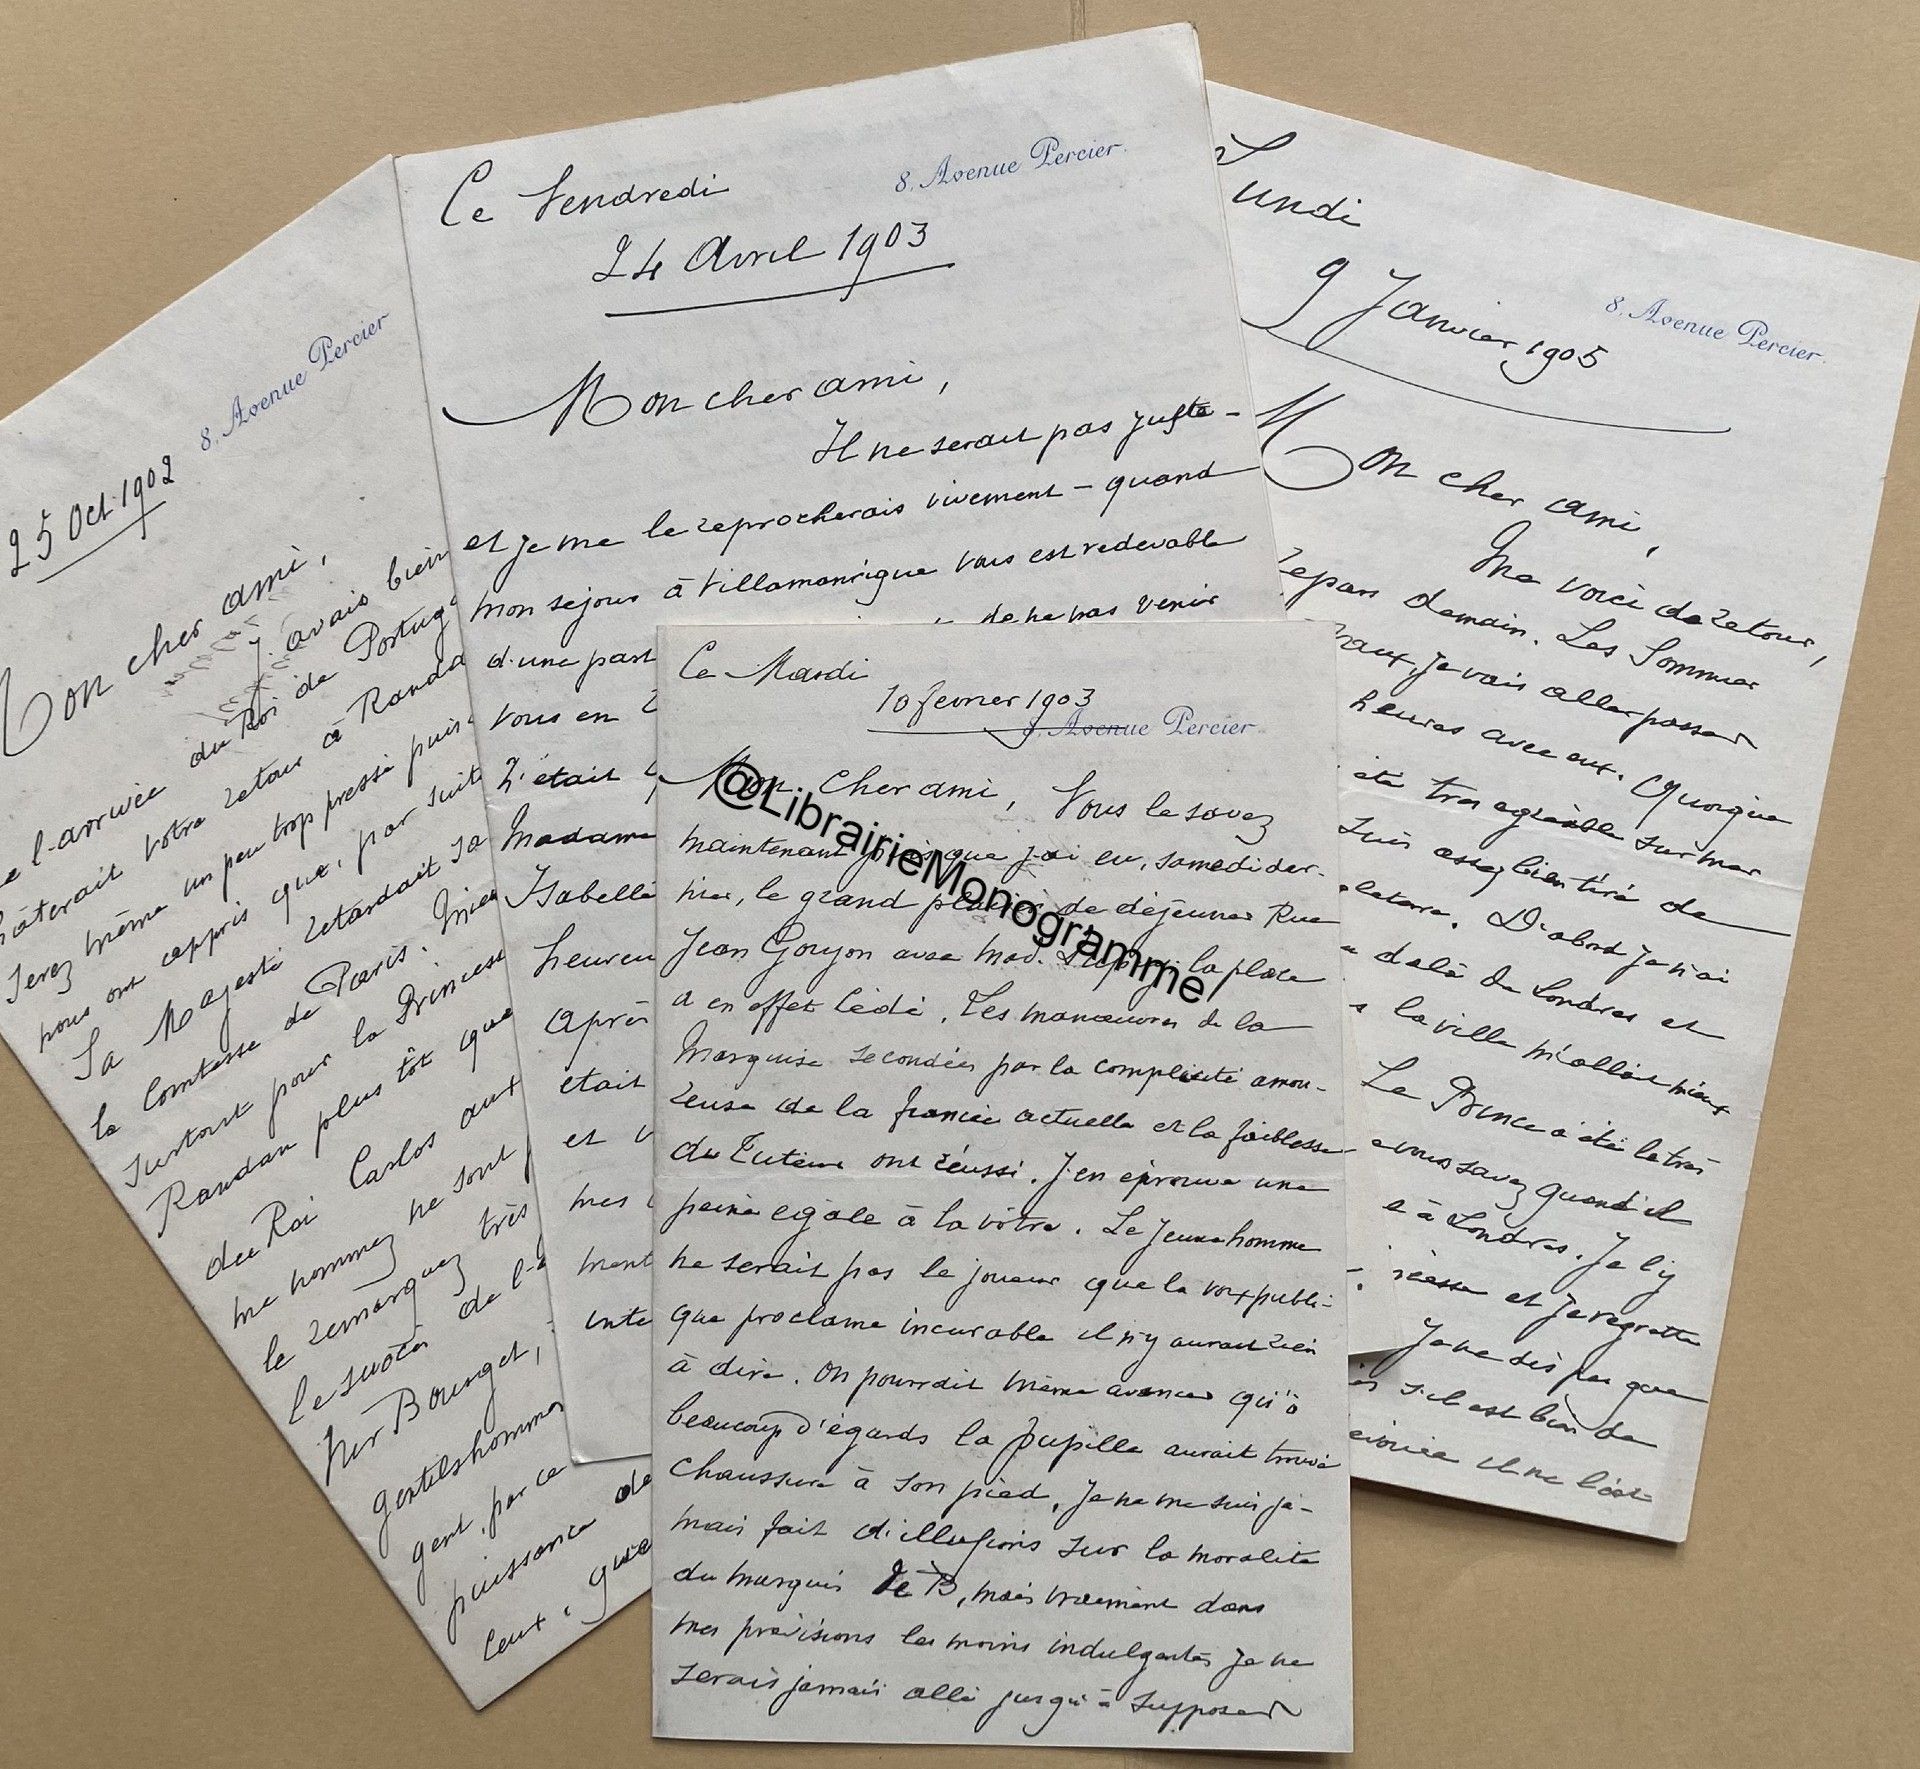 25 Oct. 1902
8, Avenue Percier
Mon cher ami,
J'avais bien
l'arrivée du Roi de Portug
hâterait votre retour à Randa
serez même un peu trop pressé puis
nous ont appris que, par suite
Sa Majesté retardait sa
la Comtesse de Paris.
surtout pour la Princess
Randan plus tôt que
du Roi Carlos aux
me nommez ne sont
le remarquez très
le succès de l'
Bourget,
gentilshommes
gent, par ce
puissance de
ceux,
Ce Vendredi
8, Avenue Percier.
24 Avril 1903
Mon cher ami,
Il ne serait pas juste –
et je me le reprocherais vivement – quand
mon séjour à Villamanrique vous est redevable
d'une part de ne pas venir
vous en
C'était
Madame
Isabelle
heureu
après
était
et v
mes
ment
inte
Ce Mardi
10 février 1903
8, Avenue Percier.
Mon cher ami, Vous le savez
maintenant puisque j'ai eu, samedi der-
nier, le grand plaisir de déjeuner Rue
Jean Goujon avec Mad. la place
a en effet cédé. Les manœuvres de la
Marquise secondées par la complicité amou-
reuse de la fiancée actuelle et la faiblesse
du Tuteur ont réussi. J'en éprouve une
peine égale à la vôtre. Le jeune homme
ne serait pas le joueur que la voix publi-
que proclame incurable il n'y aurait rien
à dire. On pourrait même avancer qu'à
beaucoup d'égards la pupille aurait trouvé
chaussure à son pied. Je ne me suis ja-
mais fait d'illusions sur la moralité
du marquis de B, mais vraiment dans
mes prévisions les moins indulgentes je ne
serais jamais allé jusqu'à supposer
@LibrairieMonogramme
Lundi
8, Avenue Percier.
9 Janvier 1905
Mon cher ami,
Me voici de retour,
repars demain. Les Sommier
aux, je vais aller passer
heures avec eux. Quoique
été très agréable sur mer
suis assez bien tiré de
eterre. D'abord je n'ai
delà de Londres et
la ville m'allait mieux
Le Prince a été le très
vous savez quand il
e à Londres. Je l'y
et je regrette
Je ne dis pas que
s'il est bien de
il ne l'est